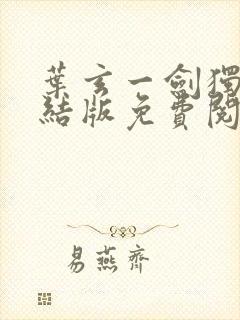 葉玄一劍獨
結版免費閱
易燕齊